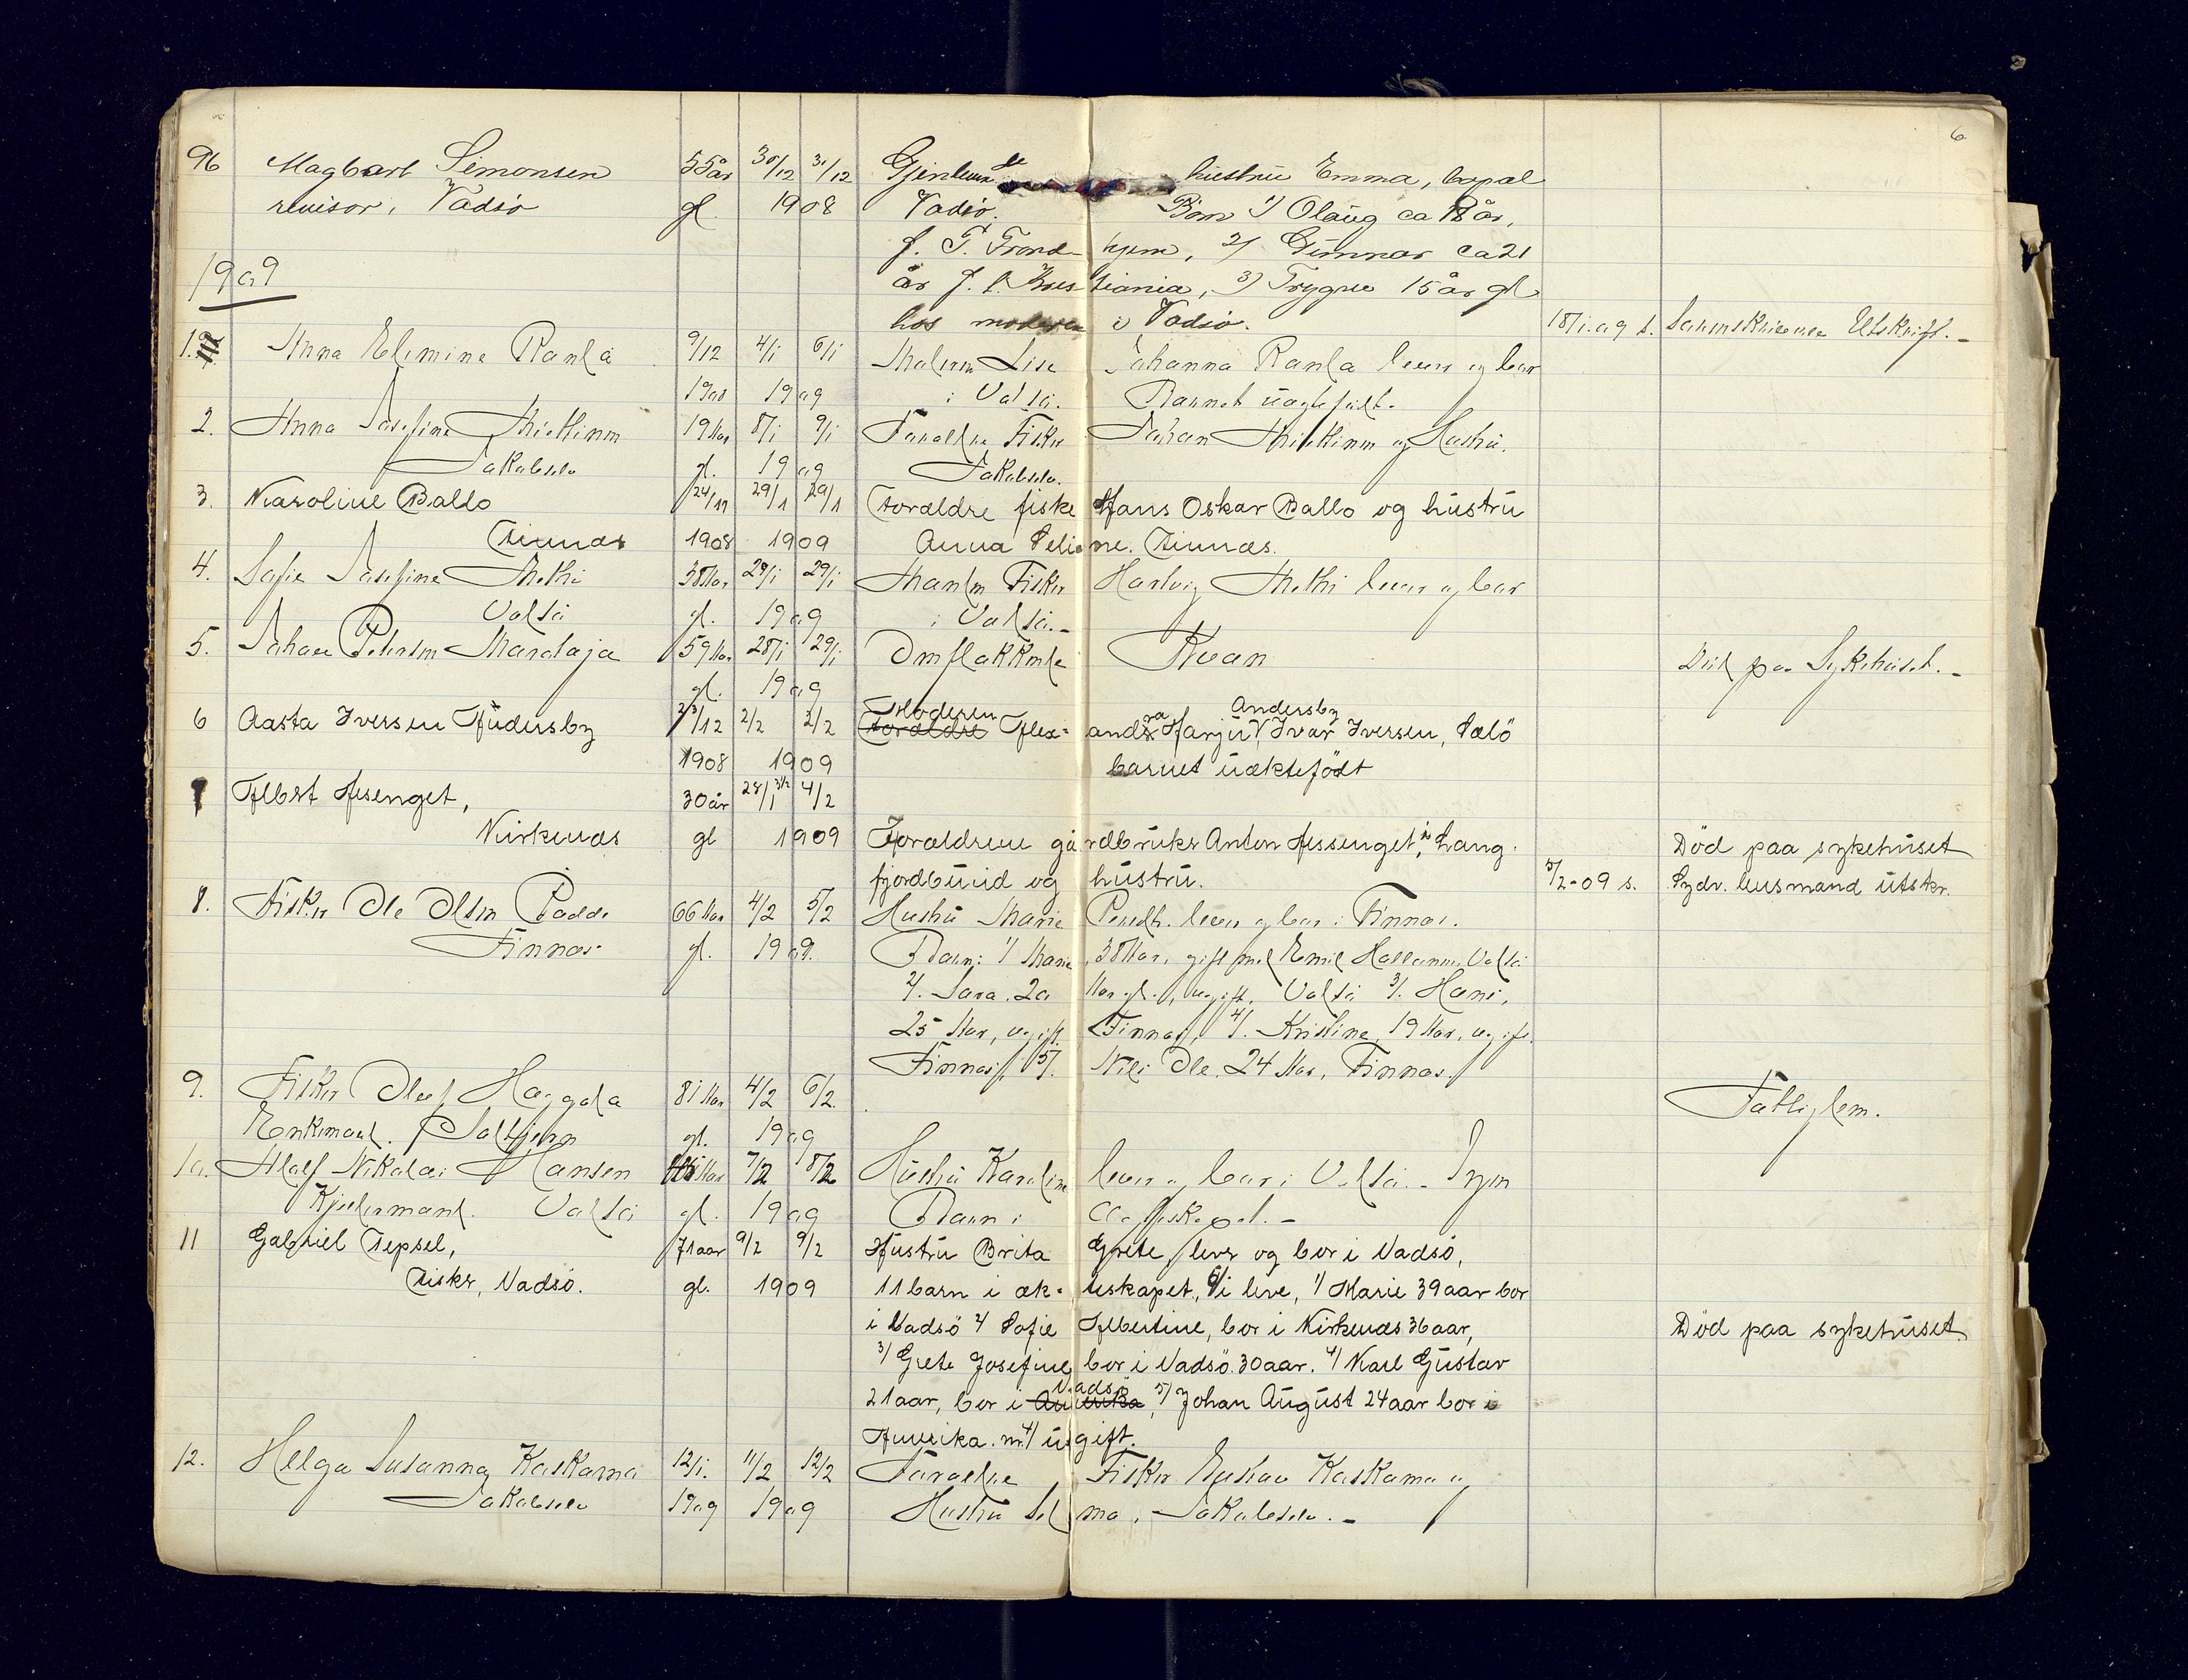 6.
96 Magbart Simonsen 55 år 30/12 31/12 Gjenlevende hustru Emma, bopæl
revisor, Vadsö gl. 1908 Vadsö. Börn 1) Olaug ca 18 år,
f. t. Trondhjem, 2) Gunnar ca 21
1909 år f. t. Kristiania, 3) Trygve 15 år gl
hos moderen i Vadsö.
1. Anna Elimine Ranta 9/12 4/1 6/1 Moderen Lise Johanna Ranta lever og bor 18/1.09 s. Utskrift.-
1908 1909 i Vadsö. Barnet uægtefødt.
2. Anna Josefine 19 Aar 8/1 9/1 Forældre Fisker Johan og Hustru.
Jakobselv gl. 1909 Jakobselv.
3. Karoline Ballo 24/11 29/1 29/1 Forældre fisker Hans Oskar Ballo og hustru
Finnæs 1908 1909 Anna Seline. Finnæs.
4. Sofie Josefine Mathi 38 Aar 29/1 29/1 Manden Fisker Hartvig Mathi lever og bor
Vadsö gl. 1909 i Vadsö.-
5. Johan Petersen Marataja 59 Aar 28/1 29/1 Omflakkende Kvæn Död paa Sykehuset.-
gl. 1909
6 Aasta Iversen Andersby 23/12 2/2 2/2 Moderen Forældre Alexandra Harju, Ivar Iversen Andersby, Salö
1908 1909 barnet uæktefödt
7 Albert Assenget, 30 år 28/1 31/1 4/2
Kirkenæs gl 1909 Forældrene gårdbruker Anton Assenget, i Lang- Död paa sykehuset
fjordbund og hustru. 5/2-09 s. Sydv. lensmand utskr.
8. Fisker Ole Olsen Badde 66 Aar 4/2 5/2 Hustru Marie lever og bor i Finnæs.
Finnæs gl. 1909. Barn: 1/ Marie, 38 Aar, gift med Emil Vadsö
2/. Sara. 20 Aar gl., ugift. Vadsö 3/. Hans,
25 Aar, ugift. Finnæs, 4/. Kristine, 19 Aar, ugift.
Finnæs, 5/. Nils Ole. 24 Aar, Finnæs.
9. Fisker Olof Haggala 81 Aar 4/2 6/2. Fattiglem.
Enkemand. Saltjern gl. 1909
10. Olaf Nikolai Hansen Aar 7/2 8/2 Hustru Karoline lever og bor i Vadsö.- Ingen
Kjelermand. Vadsö gl. 1909 Barn i Ægteskapet.-
11 Gabriel Tepsel, 71 aar 9/2 9/2 Hustru Brita Grete lever og bor i Vadsö,
Fisker, Vadsö. gl. 1909 11 barn i ækteskapet, 6/i live, 1/ Marie 39 aar bor
i Vadsö 2/ Sofie Albertine, bor i Kirkenæs 36 aar, Död paa sykehuset
3/ Grete Josefine bor i Vadsö. 30 aar. 4/ Karl Gustav
21 aar, bor i Amerika Vadsö, 5/ Johan August 24 aar bor i
Amerika. nr 4/ ugift.
12. Helga Susanna Kaskama 12/1. 11/2 12/2 Forældre Fisker Kaskama og
Jakobselv 1909 1909 Hustru Selma, Jakobselv.-